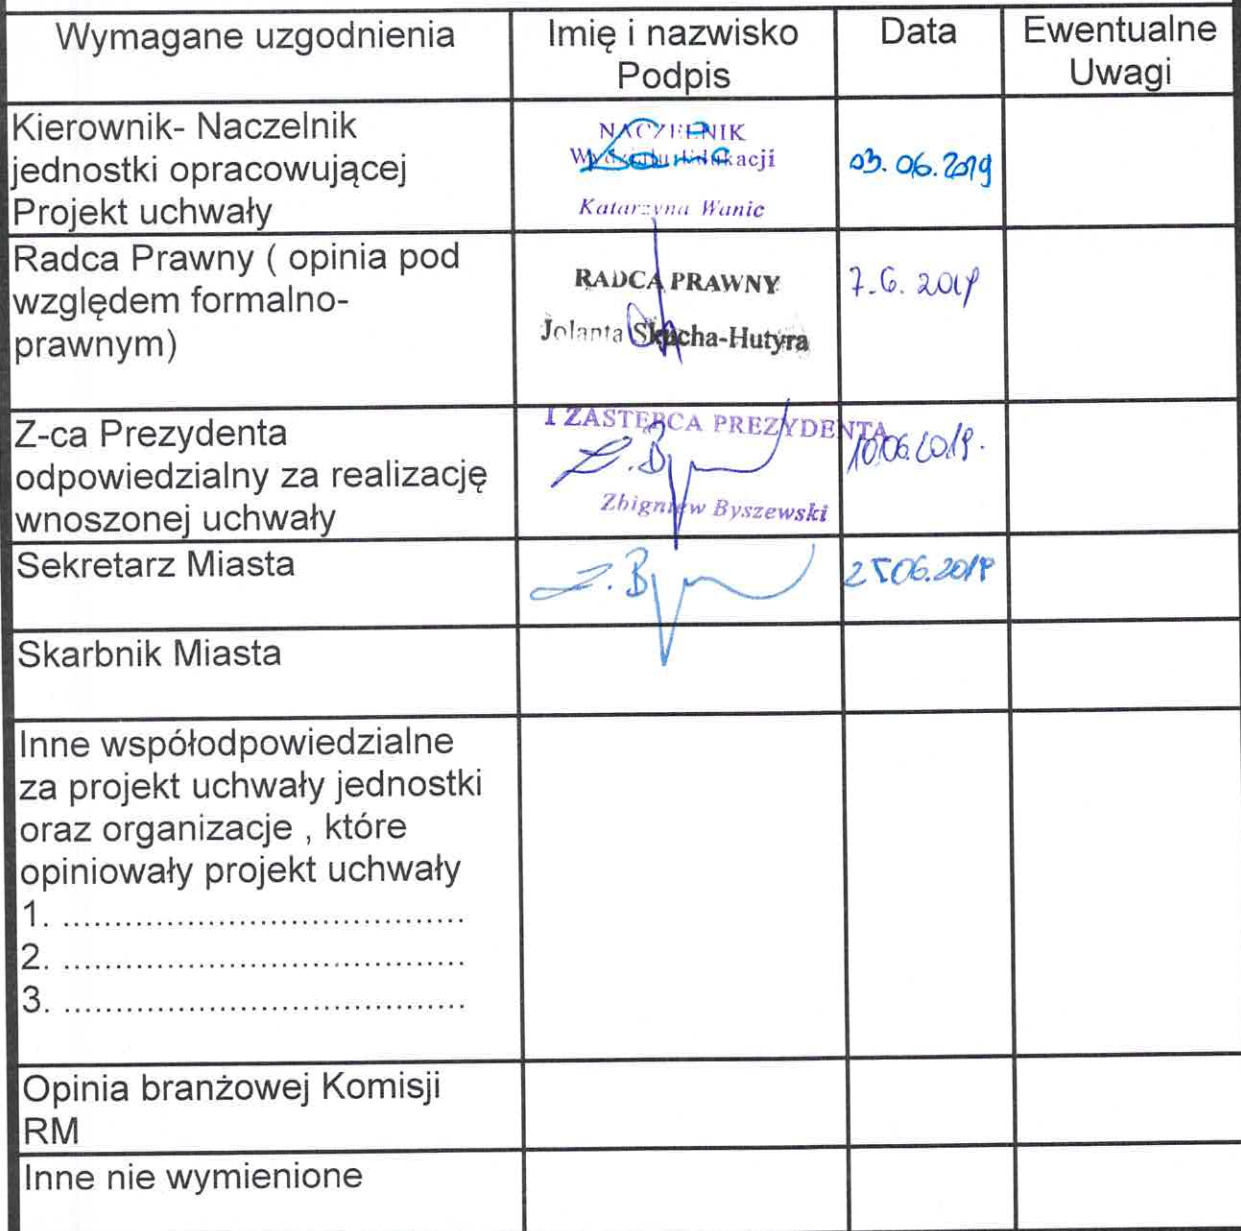 Wymagane uzgodnienia
Imię i nazwisko
Podpis
Data
Ewentualne
Uwagi
Kierownik- Naczelnik
jednostki opracowującej
Projekt uchwały
NACZELNIK
Wydziału Edukacji
Katarzyna Wanic
03.06.2019
Radca Prawny ( opinia pod
względem formalno-
prawnym)
RADCA PRAWNY
Jolanta Skucha-Hutyra
7.6.2019
Z-ca Prezydenta
odpowiedzialny za realizację
wnoszonej uchwały
I ZASTĘPCA PREZYDENTA
Z. By
Zbigniew Byszewski
10.06.2019.
Sekretarz Miasta
Z. By
25.06.2019
Skarbnik Miasta
Inne współodpowiedzialne
za projekt uchwały jednostki
oraz organizacje , które
opiniowały projekt uchwały
1. .......................................
2. .......................................
3. .......................................
Opinia branżowej Komisji
RM
Inne nie wymienione